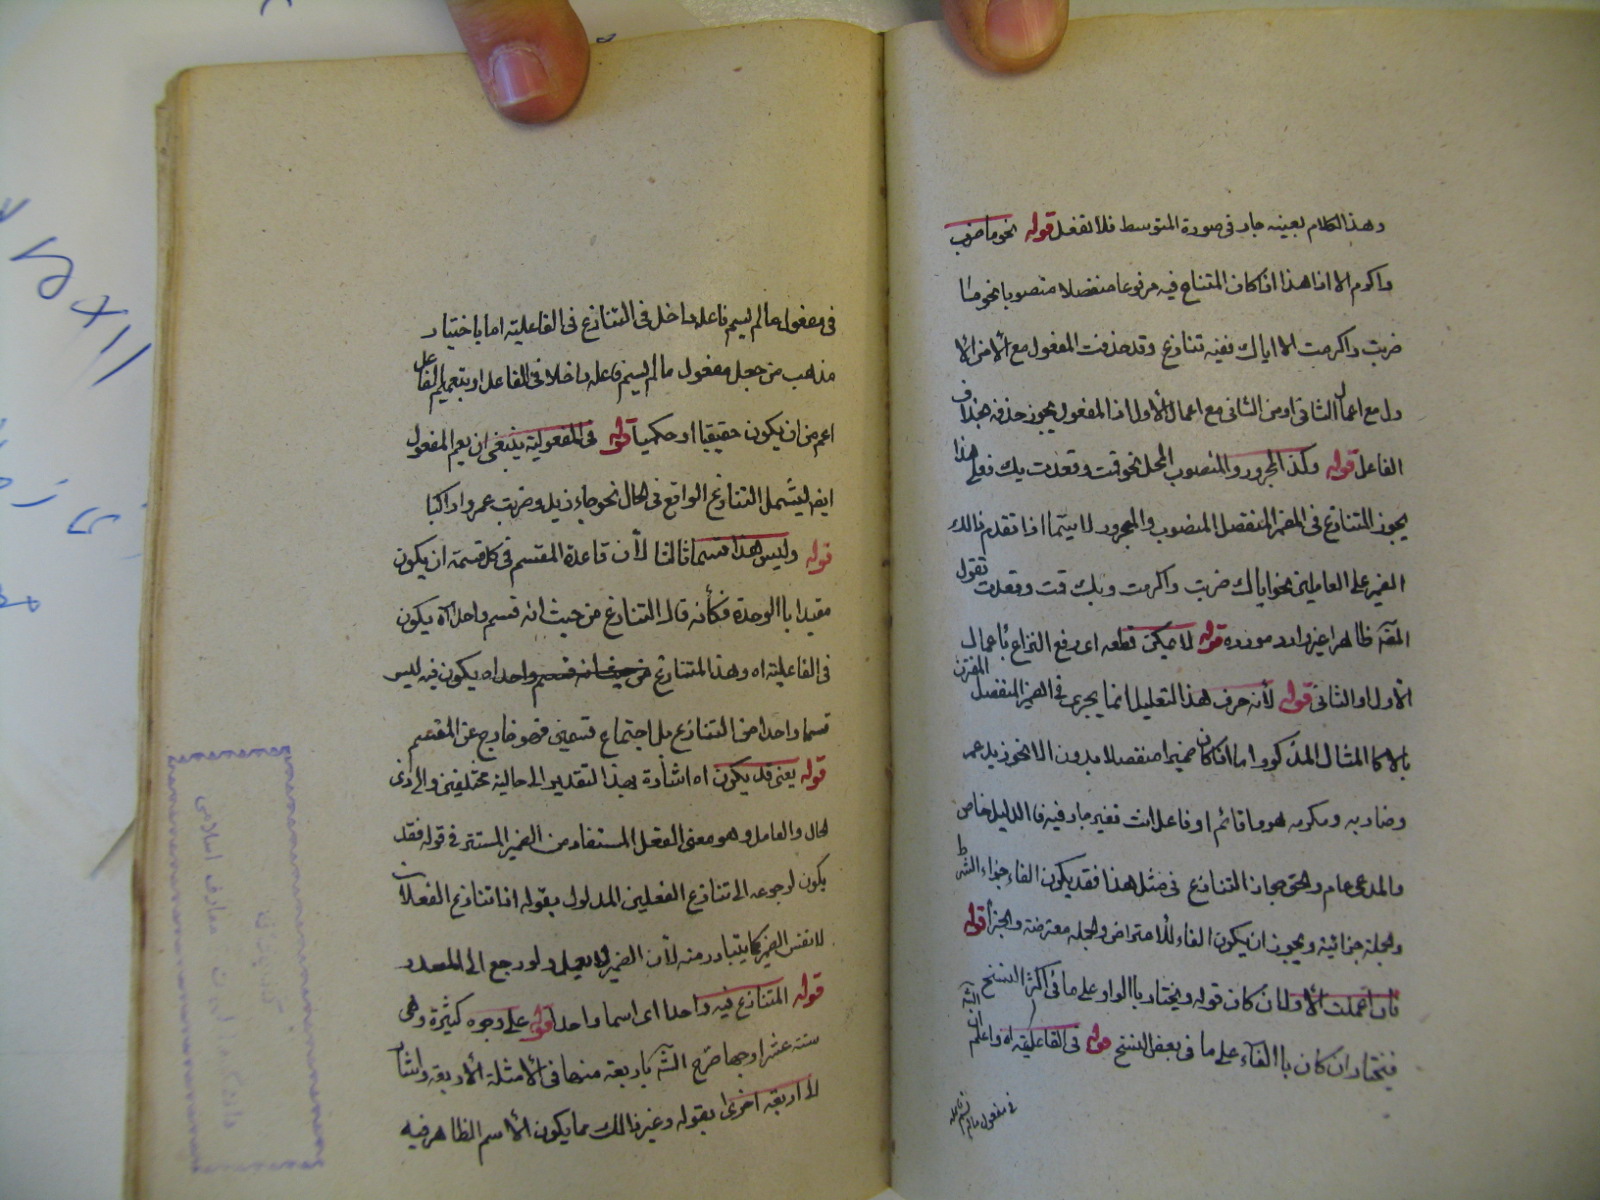 وهذا الكلام بعينه جار فى صورة المتوسط فلا تغفل قوله نحو ما ضرب
واكرم الا انا هذا اذا كان المتنازع فيه مرفوعا منفصلا منصوبا نحو ما
ضربت واكرمت الا اياك ففيه تنازع وقد حذفت المفعول مع الا من الاول
مع اعمال الثانى او من الثانى مع اعمال الأول اذ المفعول يجوز حذفه بخلاف
الفاعل قوله وكذا المجرور والمنصوب المحل نحو قمت وقعدت بك فعلى هذا
يجوز التنازع فى المضمر المنفصل المنصوب والمجرور لا سيما اذا تقدم ذالك
الضمير على العاملين نحو اياك ضربت واكرمت وبك قمت وقعدت تقول
ظاهرا غير وارد مورده قوله لا يمكن قطعه اى رفع النزاع بأعمال
الأول او الثانى قوله لأنه حرف هذا التعليل انما يجرى فى الضمير المنفصل المقترن
بالا كالمثال المذكور واما اذا كان ضميرا منفصلا بدون الا نحو زيد عمر
وضاربه ومكرمه هو وما قائم او قاعد انت فغير جار فيه فالدليل خاص
والمدعى عام وحتى جاز التنازع فى مثل هذا فقد يكون الفاء جزاء الشرط
والجملة جزائية ويجوز ان يكون الفاء للأعتراض والجملة معترضة والجزأ قوله
فان اعملت الأول ان كان قوله ويختار باالواو على ما فى اكثر النسخ
فيختار ان كان باالفآء على ما فى بعض النسخ قوله فى الفاعلية اه واعلم ان
فى مفعول ما لم يسم فاعله
فى مفعول ما لم يسم فاعله داخل فى التنازع فى الفاعلية اما باختيار
مذهب من جعل مفعول ما لم يسم فاعله داخلا فى الفاعل او بتعميم الفاعل
اعم من ان يكون حقيقيا او حكميا قوله فى المفعولية ينبغى ان يعم المفعول
ايضا ليشمل التنازع الواقع فى الحال نحو جاء زيد وضربت عمروا راكبا
قوله وليس هذا قسما ثالثا لأن قاعدة المقسم فى كل قسمة ان يكون
مقيدا باالوحدة فكأنه قال التنازع من حيث انه قسم واحد اه يكون
فى الفاعلية اه وهذا المتنازع من حيث انه قسم واحد اه يكون فيه ليس
قسما واحدا من التنازع بل اجتماع قسمين فهو خارج عن المقسم
قوله يعنى قد يكون اه اشارة بهذا التقدير الى حالية مختلفين والى ذى
الحال والعامل وهو معنى الفعل المستفاد من الضمير المستتر فى قوله فقد
يكون لرجوعه الى تنازع الفعلين المدلول بقوله اذا تنازع الفعلان
لا نفس الضمير كما يتبادر منه لأن الضمير لا يعمل ولو رجع الى المصدر
قوله المتنازع فيه واحدا اى اسما واحدا قوله على وجوه كثيرة وهى
ستة عشر اوجها صرح باربعة منها فى الأمثلة الأربعة واشار
الى اربعة اخرى بقوله وغير ذالك مما يكون الأسم الظاهر فيه